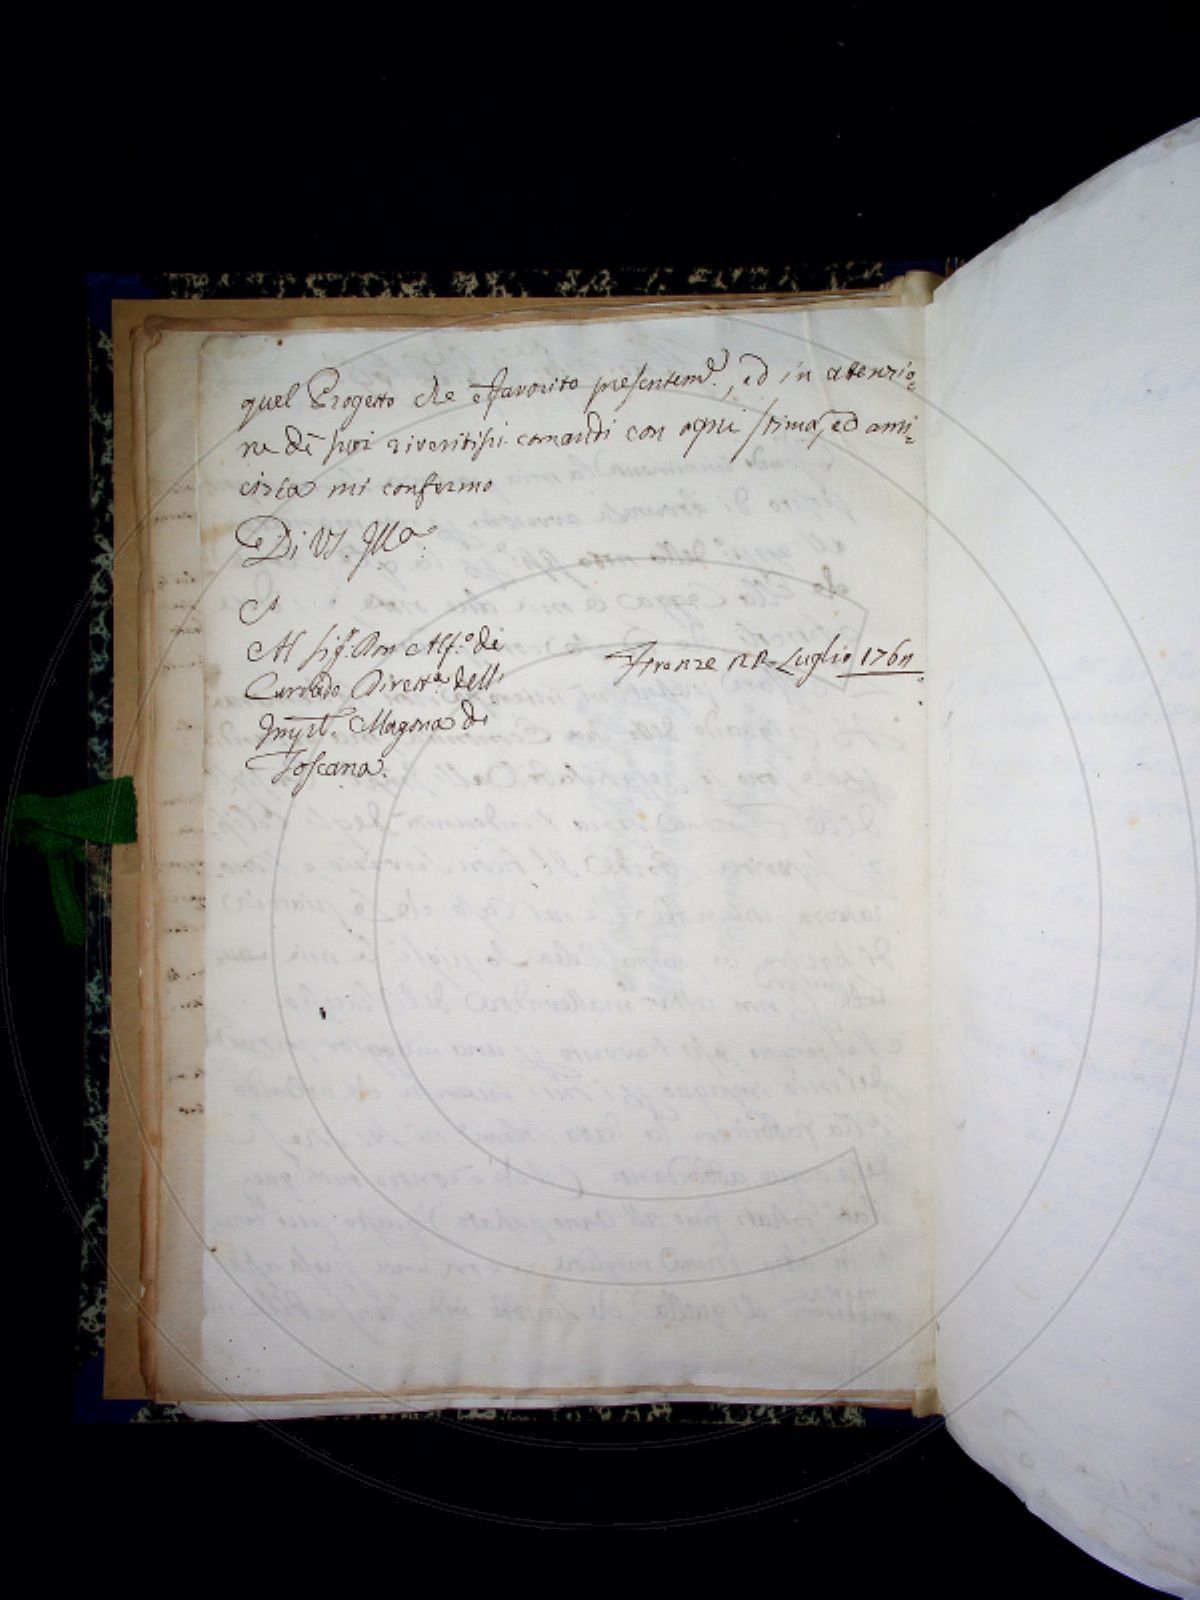 quel Progetto che è favorito presentem.e, ed in attenzio=
ne de suoi riveritissi. comandi con ogni stima, ed ami=
cizia mi confermo
Di VS. Illa.
Al Sig.r Don Alf.o de
Dirett.e dell'
Magona di
Toscana.
Firenze Luglio